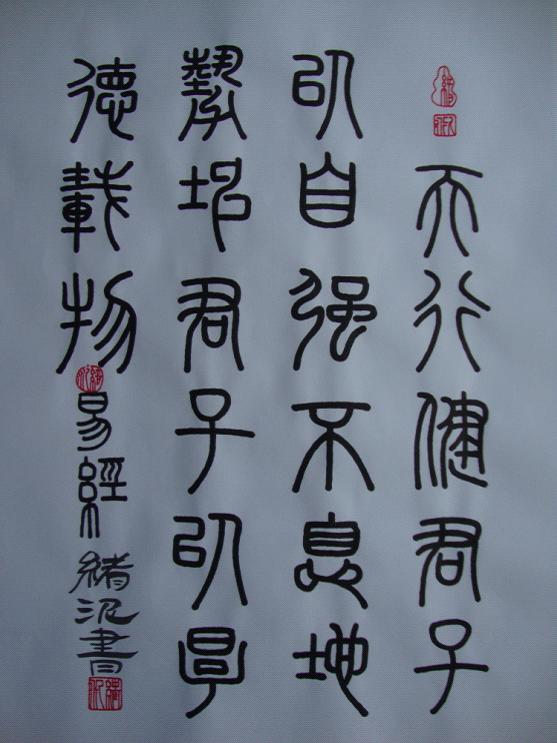 天行健君子
以自强不息地
勢坤君子以厚
德載物
易經
緒泥書